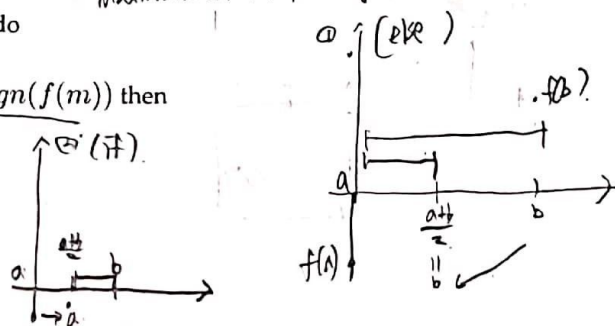 do
gn(f(m)) then
② (if)
a+b
2
a
b
→ a
① (else)
f(b)?
a
a+b
2
b
f(a)
||
b